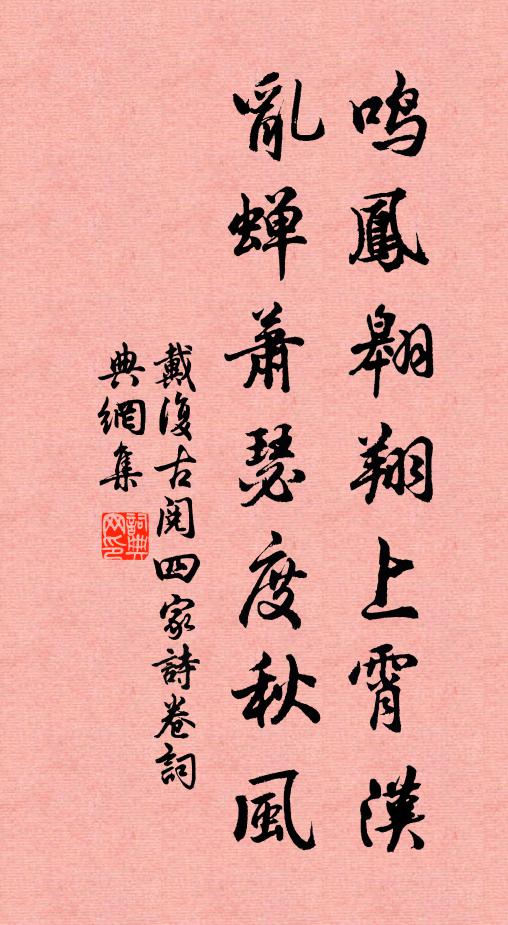 鳴鳳翱翔上霄漢
亂蟬蕭瑟度秋風
戴復古閱四家詩卷詞
典網集
詞典網印